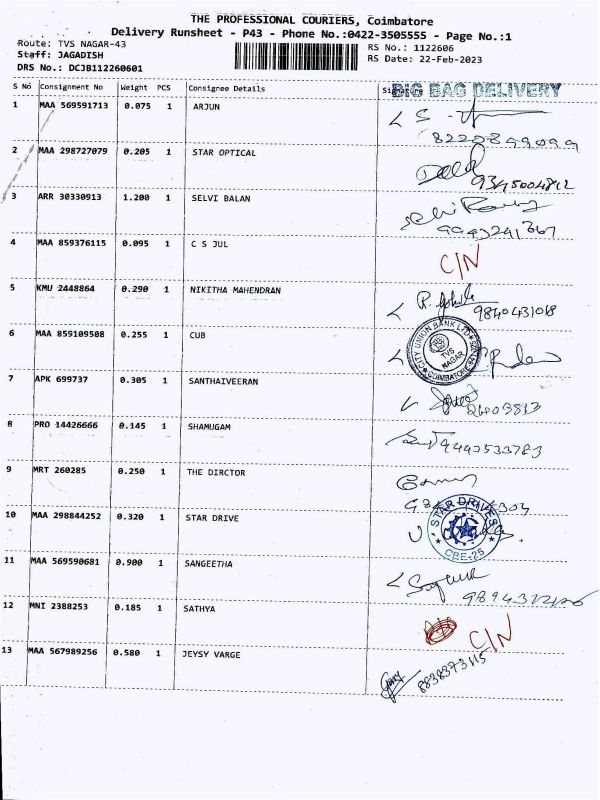 THE PROFESSIONAL COURIERS, Coimbatore
Delivery Runsheet - P43 - Phone No.:0422-3505555 - Page No.:1
Route: TVS NAGAR-43 RS No.: 1122606
Staff: JAGADISH RS Date: 22-Feb-2023
DRS No.: DCJB112260601
S No Consignment No Weight PCS Consignee Details Signature BIG BAG DELIVERY
1 MAA 569591713 0.075 1 ARJUN
8220899099
2 MAA 298727079 0.205 1 STAR OPTICAL
9345004812
3 ARR 30330913 1.200 1 SELVI BALAN
4 MAA 859376115 0.095 1 C S JUL C/N
5 KMU 2448864 0.290 1 NIKITHA MAHENDRAN
9840431018
6 MAA 859109508 0.255 1 CUB CITY UNION BANK LTD TVS NAGAR COIMBATORE
7 APK 699737 0.305 1 SANTHAIVEERAN
8 PRO 14426666 0.145 1 SHAMUGAM
9442533783
9 MRT 260285 0.250 1 THE DIRCTOR
10 MAA 298844252 0.320 1 STAR DRIVE STAR DRIVES CBE-25
11 MAA 569590681 0.900 1 SANGEETHA
12 MNI 2388253 0.185 1 SATHYA C/N
13 MAA 567989256 0.580 1 JEYSY VARGE
8838373115